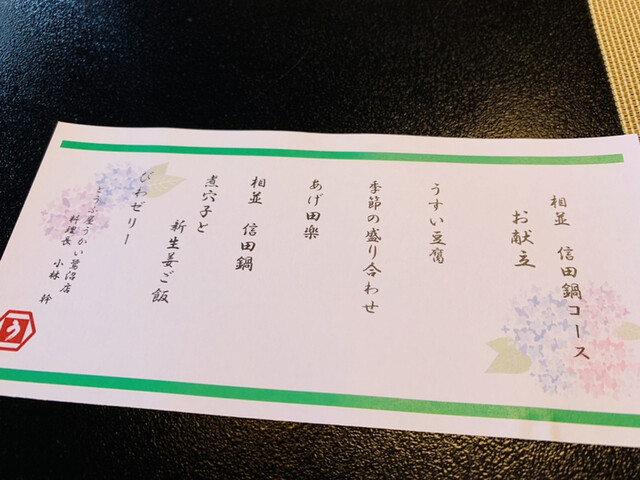 相並　信田鍋コース
お献立
うすい豆腐
季節の盛り合わせ
あげ田楽
相並　信田鍋
煮穴子と
新生姜ご飯
びわゼリー
とうふ屋うかい鷺沼店
料理長　小林　幹
う